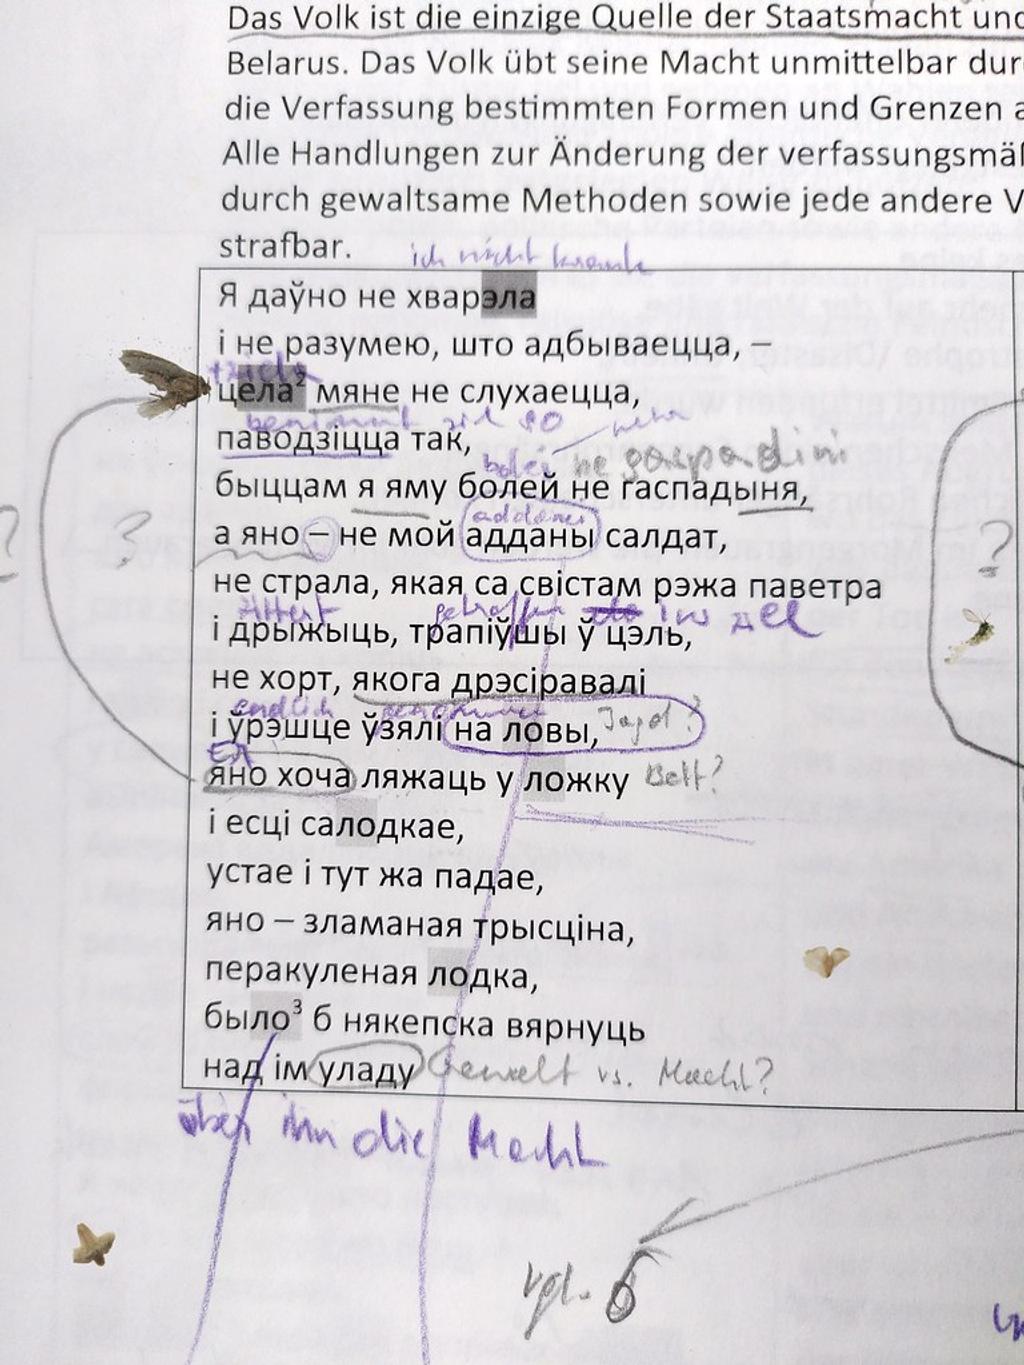 Das Volk ist die einzige Quelle der Staatsmacht und
Belarus. Das Volk übt seine Macht unmittelbar
die Verfassung bestimmten Formen und Grenzen
Alle Handlungen zur Änderung der
durch gewaltsame Methoden sowie jede andere
strafbar.
ich nicht krank
Я даўно не хварэла
і не разумею, што адбываецца, –
цела² мяне не слухаецца,
benimmt
паводзіцца так,
bolej ne gaspadini
быццам я яму болей не гаспадыня,
addany
? ? а яно – не мой адданы салдат, ?
не страла, якая са свістам рэжа паветра
getroffen ins
і дрыжыць, трапіўшы ў цэль,
не хорт, якога дрэсіравалі
endlich genommen
і ўрэшце ўзялі на ловы, Jagd?
яно хоча ляжаць у ложку Bett?
і есці салодкае,
устае і тут жа падае,
яно – зламаная трысціна,
перакуленая лодка,
было³ б някепска вярнуць
над ім уладу Gewalt vs. Macht?
über ihn die Macht
vgl. 6